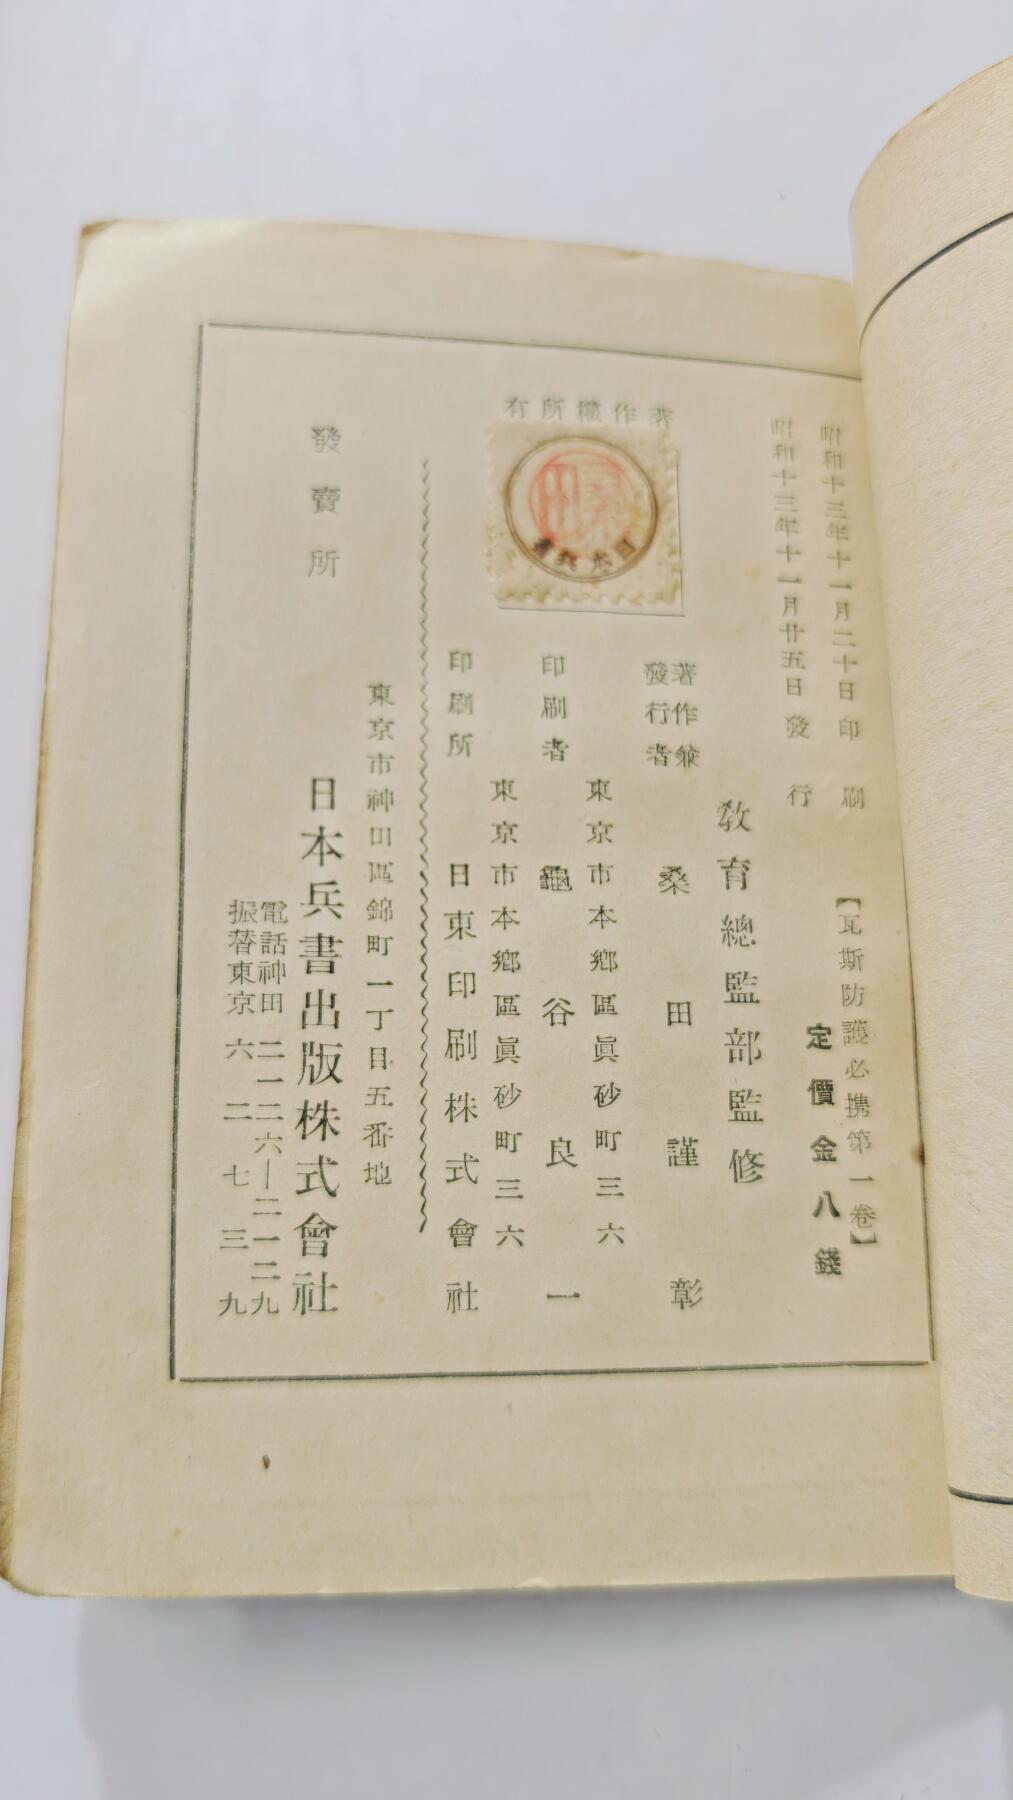 昭和十三年十一月二十日印刷
昭和十三年十一月廿五日發行
【瓦斯防護必携第一卷】
定價金八錢
著作權所有
桑田
日本兵書
教育總監部監修
著作兼
發行者
桑田謹彰
東京市本鄕區眞砂町三六
印刷者
龜谷良一
東京市本鄕區眞砂町三六
印刷所
日東印刷株式會社
東京市神田區錦町一丁目五番地
發賣所
日本兵書出版株式會社
電話神田二一二六―二一二九
振替東京六二七三九